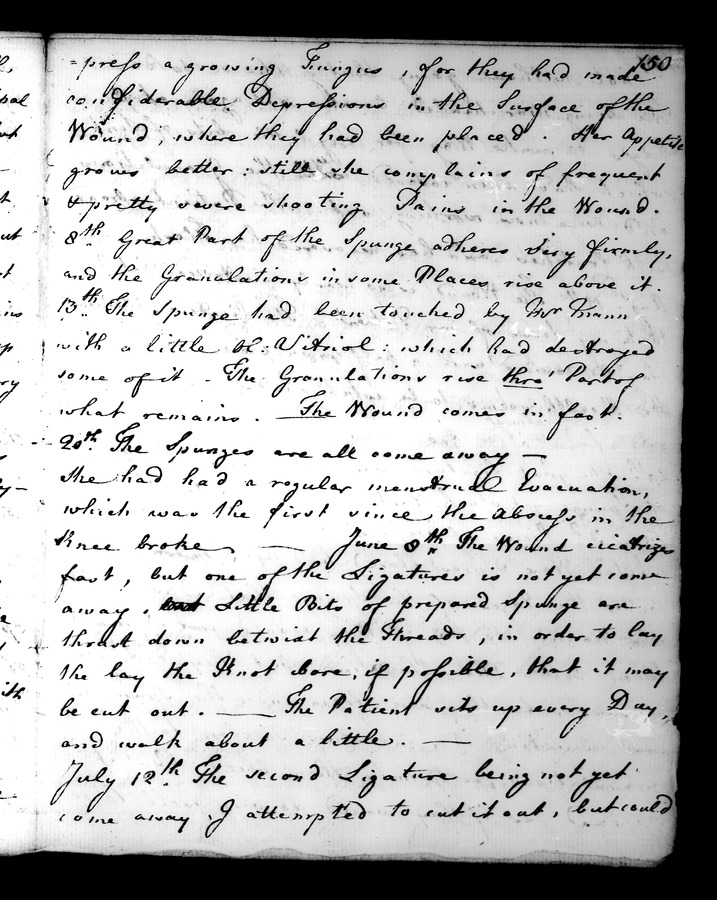 150
=press a growing Fungus, for they had made
considerable Depressions in the Surface of the
Wound, where they had been placed. Her Appetite
grows better: still she complains of frequent
& pretty severe shooting Pains in the Wound.
8th. Great Part of the Spunge adheres very firmly,
and the Granulations in some Places rise above it.
13th. The Spunge had been touched by Mr Mann
with a little Ol: Vitriol: which had destroyed
some of it - The Granulations rise thro' Part of
what remains. The Wound comes in fast.
20th. The Spunges are all come away —
She had had a regular menstrual Evacuation,
which was the first since the Abscess in the
Knee broke, — June 8th The Wound cicatrizes
fast, but one of the Ligatures is not yet come
away, but Little Bits of prepared Spunge are
thrust down betwixt the Threads, in order to lay
the lay the Knot bare, if possible, that it may
be cut out. — The Patient sits up every Day,
and walk about a little. —
July 12th. The second Ligature being not yet
come away I attempted to cut it out, but could